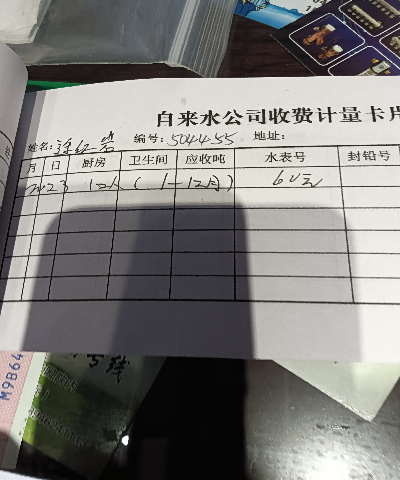 自来水公司收费计量卡片
姓名: 编号: 5044-55 地址:
月 日 厨房 卫生间 应收吨 水表号 封铅号
2023 12人 (1—12月) 60元
号线
M9B64